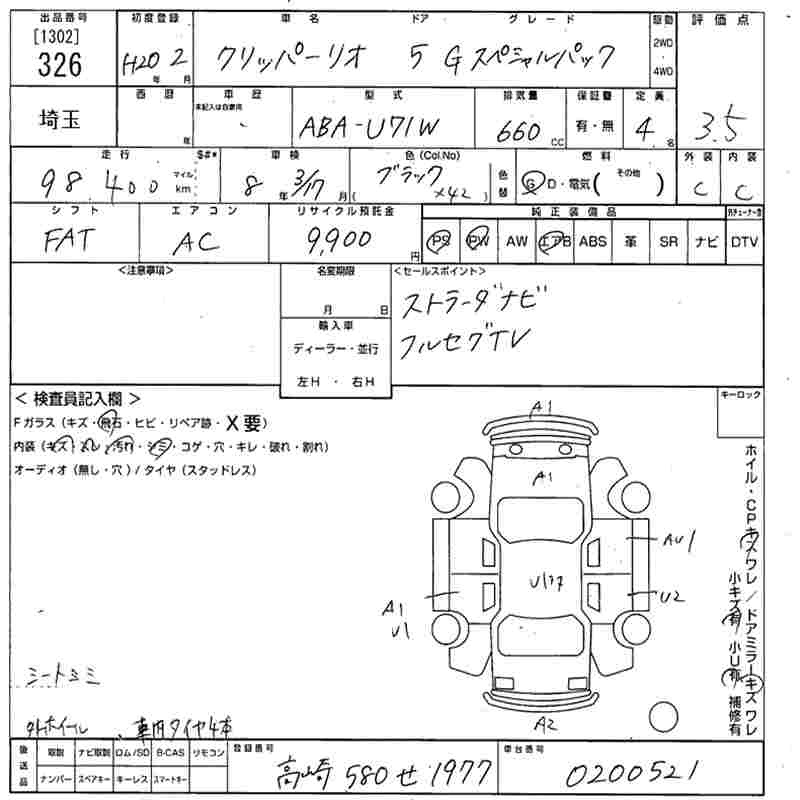 出品番号 初度登録 車名 ドア グレード 駆動 評価点
[1302]
326 H20年 2月 クリッパーリオ 5 Gスペシャルパック 2WD・4WD
埼玉 西暦 年 車歴 未記入は自家用 型式 ABA-U71W 排気量 660cc 保証書 有・無 定員 4名 3.5
走行 マイル km $#* 車検 色(Col.No) 色替 燃料 外装 内装
98,400 8年3/17月 ブラック (X42) G D・電気(その他) C C
シフト エアコン リサイクル預託金 純正装備品
FAT AC 9,900円 PS PW AW エアB ABS 革 SR ナビ DTV
<注意事項> 名変期限 <セールスポイント>
月 日 ストラーダナビ
輸入車 フルセグTV
ディーラー・並行
左H・右H
< 検査員記入欄 > キーロック
Fガラス(キズ・飛石・ヒビ・リペア跡・X要)
内装(キズ・ヌレ・汚れ・シミ・コゲ・穴・キレ・破れ・割れ)
オーディオ(無し・穴)/タイヤ(スタッドレス)
A1
A1
AU1
U2
A1
U1
A2
ホイル・CPキズワレ/ドアミラーキズワレ
小キズ有 小U有 補修有
シートシミ
外ホイール、車内タイヤ4本
後送品 取説 ナビ取説 ロム/SD B-CAS リモコン
ナンバー スペアキー キーレス スマートキー
登録番号 高崎 580 せ 1977
車台番号 0200521